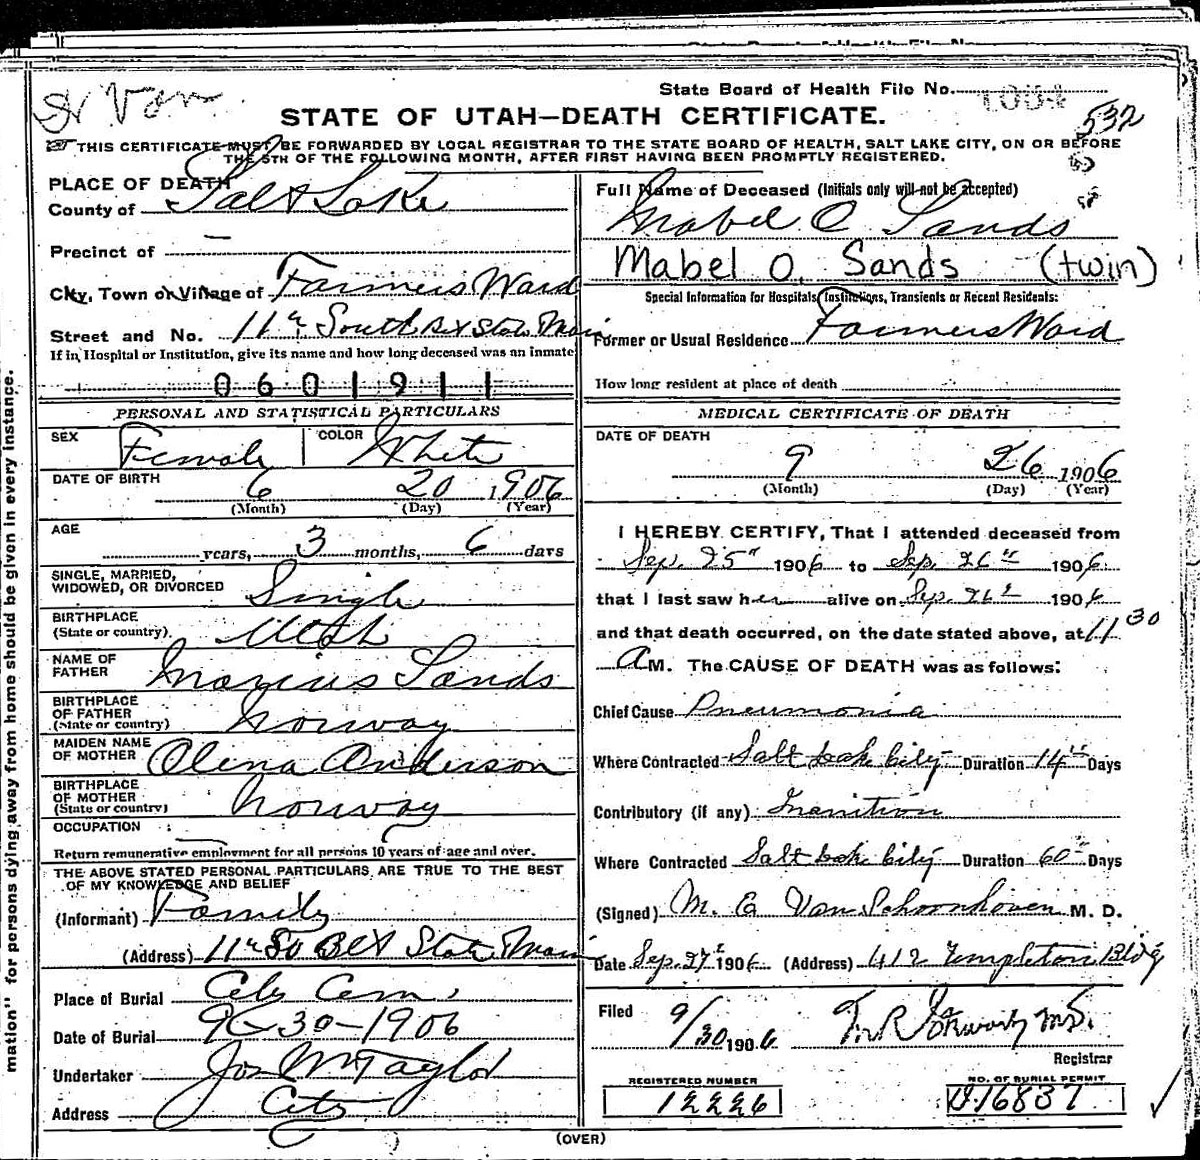 State Board of Health File No.
STATE OF UTAH—DEATH CERTIFICATE.
532
THIS CERTIFICATE MUST BE FORWARDED BY LOCAL REGISTRAR TO THE STATE BOARD OF HEALTH, SALT LAKE CITY, ON OR BEFORE
THE 5TH OF THE FOLLOWING MONTH, AFTER FIRST HAVING BEEN PROMPTLY REGISTERED.
PLACE OF DEATH
County of Salt Lake
Precinct of —
City, Town or Village of Farmers Ward
Street and No. 11th South Bet State Main
If in Hospital or Institution, give its name and how long deceased was an inmate
0601911
PERSONAL AND STATISTICAL PARTICULARS
SEX Female COLOR White
DATE OF BIRTH 6 20 1906
(Month) (Day) (Year)
AGE years, 3 months, 6 days
SINGLE, MARRIED,
WIDOWED, OR DIVORCED Single
BIRTHPLACE
(State or country) Utah
NAME OF
FATHER Marius Sands
BIRTHPLACE
OF FATHER
(State or country) Norway
MAIDEN NAME
OF MOTHER Olena Anderson
BIRTHPLACE
OF MOTHER
(State or country) Norway
OCCUPATION —
Return remunerative employment for all persons 10 years of age and over.
THE ABOVE STATED PERSONAL PARTICULARS ARE TRUE TO THE BEST
OF MY KNOWLEDGE AND BELIEF
(Informant) Family
(Address) 11th So Bet State Main
Place of Burial City Cem.
Date of Burial 9-30-1906
Undertaker Jos Wm Taylor
Address City
Full Name of Deceased (Initials only will not be accepted)
Mabel O Sands
Mabel O. Sands (twin)
Special Information for Hospitals, Institutions, Transients or Recent Residents:
Former or Usual Residence Farmers Ward
How long resident at place of death
MEDICAL CERTIFICATE OF DEATH
DATE OF DEATH
9 26 1906
(Month) (Day) (Year)
I HEREBY CERTIFY, That I attended deceased from
Sep. 25" 1906 to Sep. 26th 1906
that I last saw her alive on Sep. 26th 1906
and that death occurred, on the date stated above, at 11 30
A M. The CAUSE OF DEATH was as follows:
Chief Cause Pneumonia
Where Contracted Salt Lake City Duration 14 Days
Contributory (if any) Inanition
Where Contracted Salt Lake City Duration 60 Days
(Signed) M. E Van Schoonhoven M. D.
Date Sep. 27 1906 (Address) 412 Templeton Bldg
Filed 9/30 1906
Registrar
REGISTERED NUMBER
12226
NO. OF BURIAL PERMIT
U16837
(OVER)
mation" for persons dying away from home should be given in every instance.